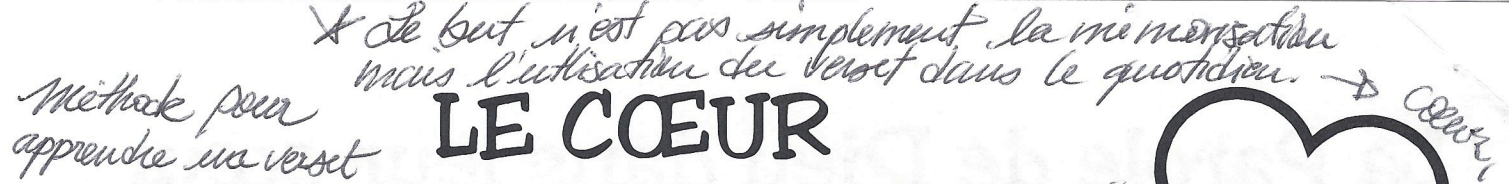 * Le but n'est pas simplement la mémorisation
mais l'utilisation du verset dans le quotidien. → coeur,
Méthode pour
apprendre un verset
LE CŒUR